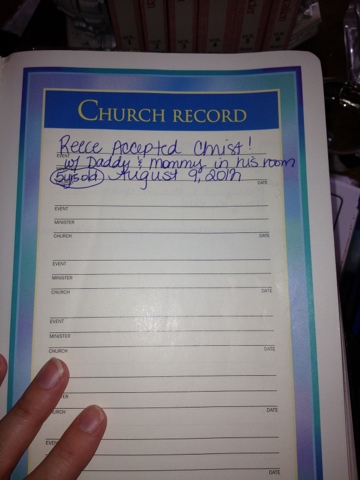 CHURCH RECORD
Reece Accepted Christ!
EVENT
w/ Daddy & mommy in his room
5yrs old August 9, 2012
DATE
EVENT
MINISTER
CHURCH DATE
EVENT
MINISTER
CHURCH DATE
EVENT
MINISTER
CHURCH DATE
CHURCH DATE
DATE